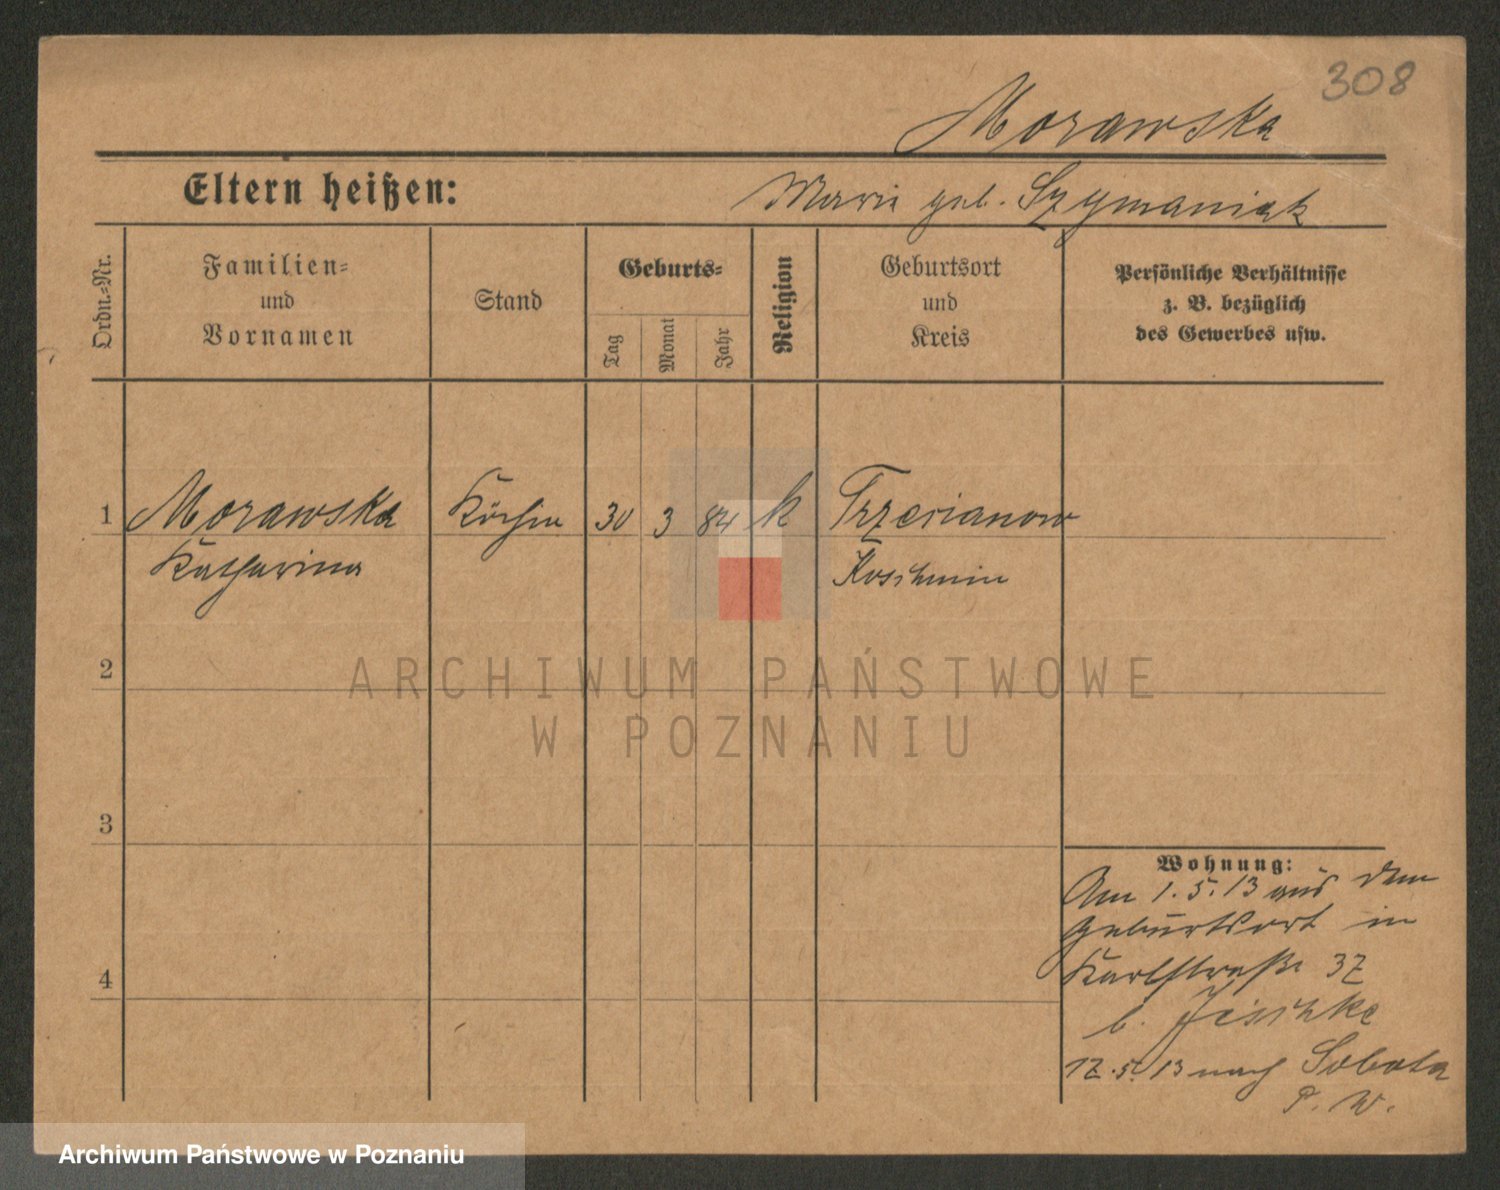 308
Morawska
Eltern heißen:
Marie geb. Szymaniak
Ordn.=Nr.
Familien=
und
Vornamen
Stand
Geburts=
Tag
Monat
Jahr
Religion
Geburtsort
und
Kreis
Persönliche Verhältnisse
z. B. bezüglich
des Gewerbes usw.
1 Morawska Köchin 30 3 84 k Trzecianow
Katharina Koschmin
2
ARCHIWUM PAŃSTWOWE
W POZNANIU
3
Wohnung:
Am 1.5.13 aus dem
Geburtsort in
4
Karlstraße 37
b. Jeschke
17.5.13 nach Sobota
P. W.
Archiwum Państwowe w Poznaniu